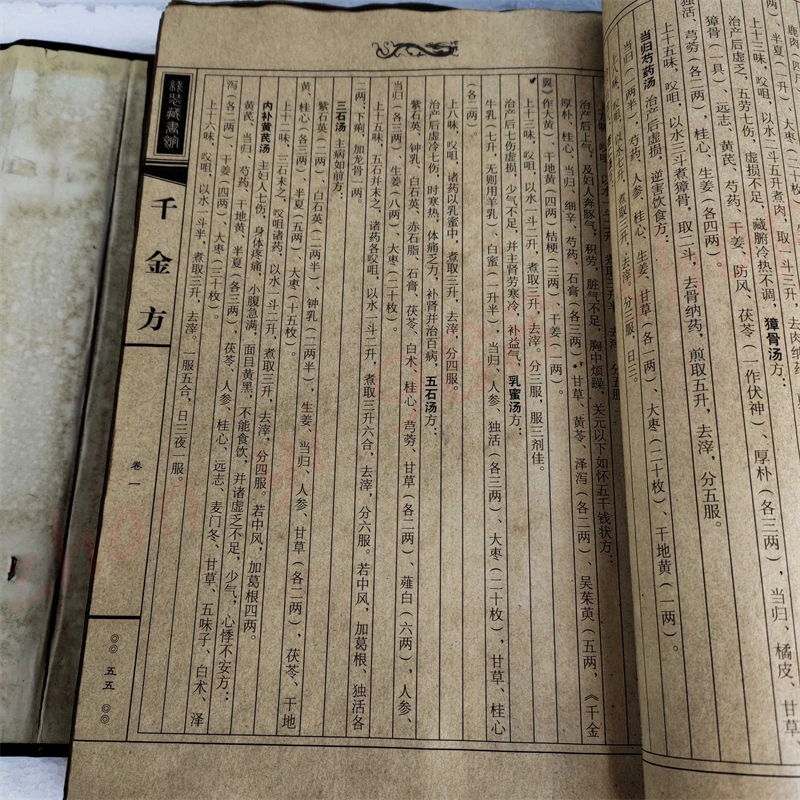 鹿肉（四斤
两）、半夏（一升）、大枣（
上十三味，㕮咀，以水二斗五升煮肉，取一斗三升，去肉纳药
治产后虚乏，五劳七伤，虚损不足，藏腑冷热不调，獐骨汤方：
獐骨（一具）、远志、黄芪、芍药、干姜、防风、茯苓（一作伏神）、厚朴（各三两），当归、橘皮、甘草、
独活、芎䓖（各二两），桂心、生姜（各四两）。
上十五味，㕮咀，以水三斗煮獐骨，取二斗，去骨纳药，煎取五升，去滓，分五服。
当归芍药汤 治产后虚损，逆害饮食方：
当归（一两半）、芍药、人参、桂心、生姜、甘草（各一两）、大枣（二十枚）、干地黄（一两）。
上八味，㕮咀，以水七升，煮取三升，去滓，分三服，日三。
味，㕮咀，以水 升，煮取 升，去滓，分五服
治产后上气，及妇人奔豚气，积劳，脏气不足，胸中烦躁，关元以下如怀五千钱状方：
厚朴、桂心、当归、细辛、芍药、石膏（各三两），甘草、黄芩、泽泻（各二两）、吴茱萸（五两，《千金
翼》作大黄）、干地黄（四两）、桔梗（三两）、干姜（二两）。
上十二味，㕮咀，以水一斗二升，煮取三升，去滓。分三服，服三剂佳。
治产后七伤虚损，少气不足，并主肾劳寒冷，补益气，乳蜜汤方：
牛乳（七升，无则用羊乳）、白蜜（一升半），当归、人参、独活（各三两）、大枣（二十枚），甘草、桂心
（各二两）。
上八味，㕮咀，诸药以乳蜜中，煮取三升，去滓，分四服。
治产后虚冷七伤，时寒热，体痛乏力，补肾并治百病，五石汤方：
紫石英、钟乳、白石英、赤石脂、石膏、茯苓、白术、桂心、芎䓖、甘草（各二两）、薤白（六两），人参、
当归（各三两），生姜（八两）、大枣（二十枚）。
上十五味，五石并末之，诸药各㕮咀，以水一斗二升，煮取三升六合，去滓，分六服。若中风，加葛根、独活各
二两，下痢，加龙骨一两。
三石汤 主病如前方：
紫石英（二两）、白石英（二两半）、钟乳（二两半），生姜、当归、人参、甘草（各二两），茯苓、干地
黄、桂心（各三两）、半夏（五两）、大枣（十五枚）。
上十一味，三石末之，㕮咀诸药，以水一斗二升，煮取三升，去滓，分四服。若中风，加葛根四两。
内补黄芪汤 主妇人七伤，身体疼痛，小腹急满，面目黄黑，不能食饮，并诸虚乏不足，少气，心悸不安方：
黄芪、当归、芍药、干地黄、半夏（各三两），茯苓、人参、桂心、远志、麦门冬、甘草、五味子、白术、泽
泻（各二两）、干姜（四两）、大枣（三十枚）。
上十六味，㕮咀，以水一斗半，煮取三升，去滓。一服五合，日三夜一服。
线装藏书馆
千金方
卷一
◎◎ 五五 ◎◎